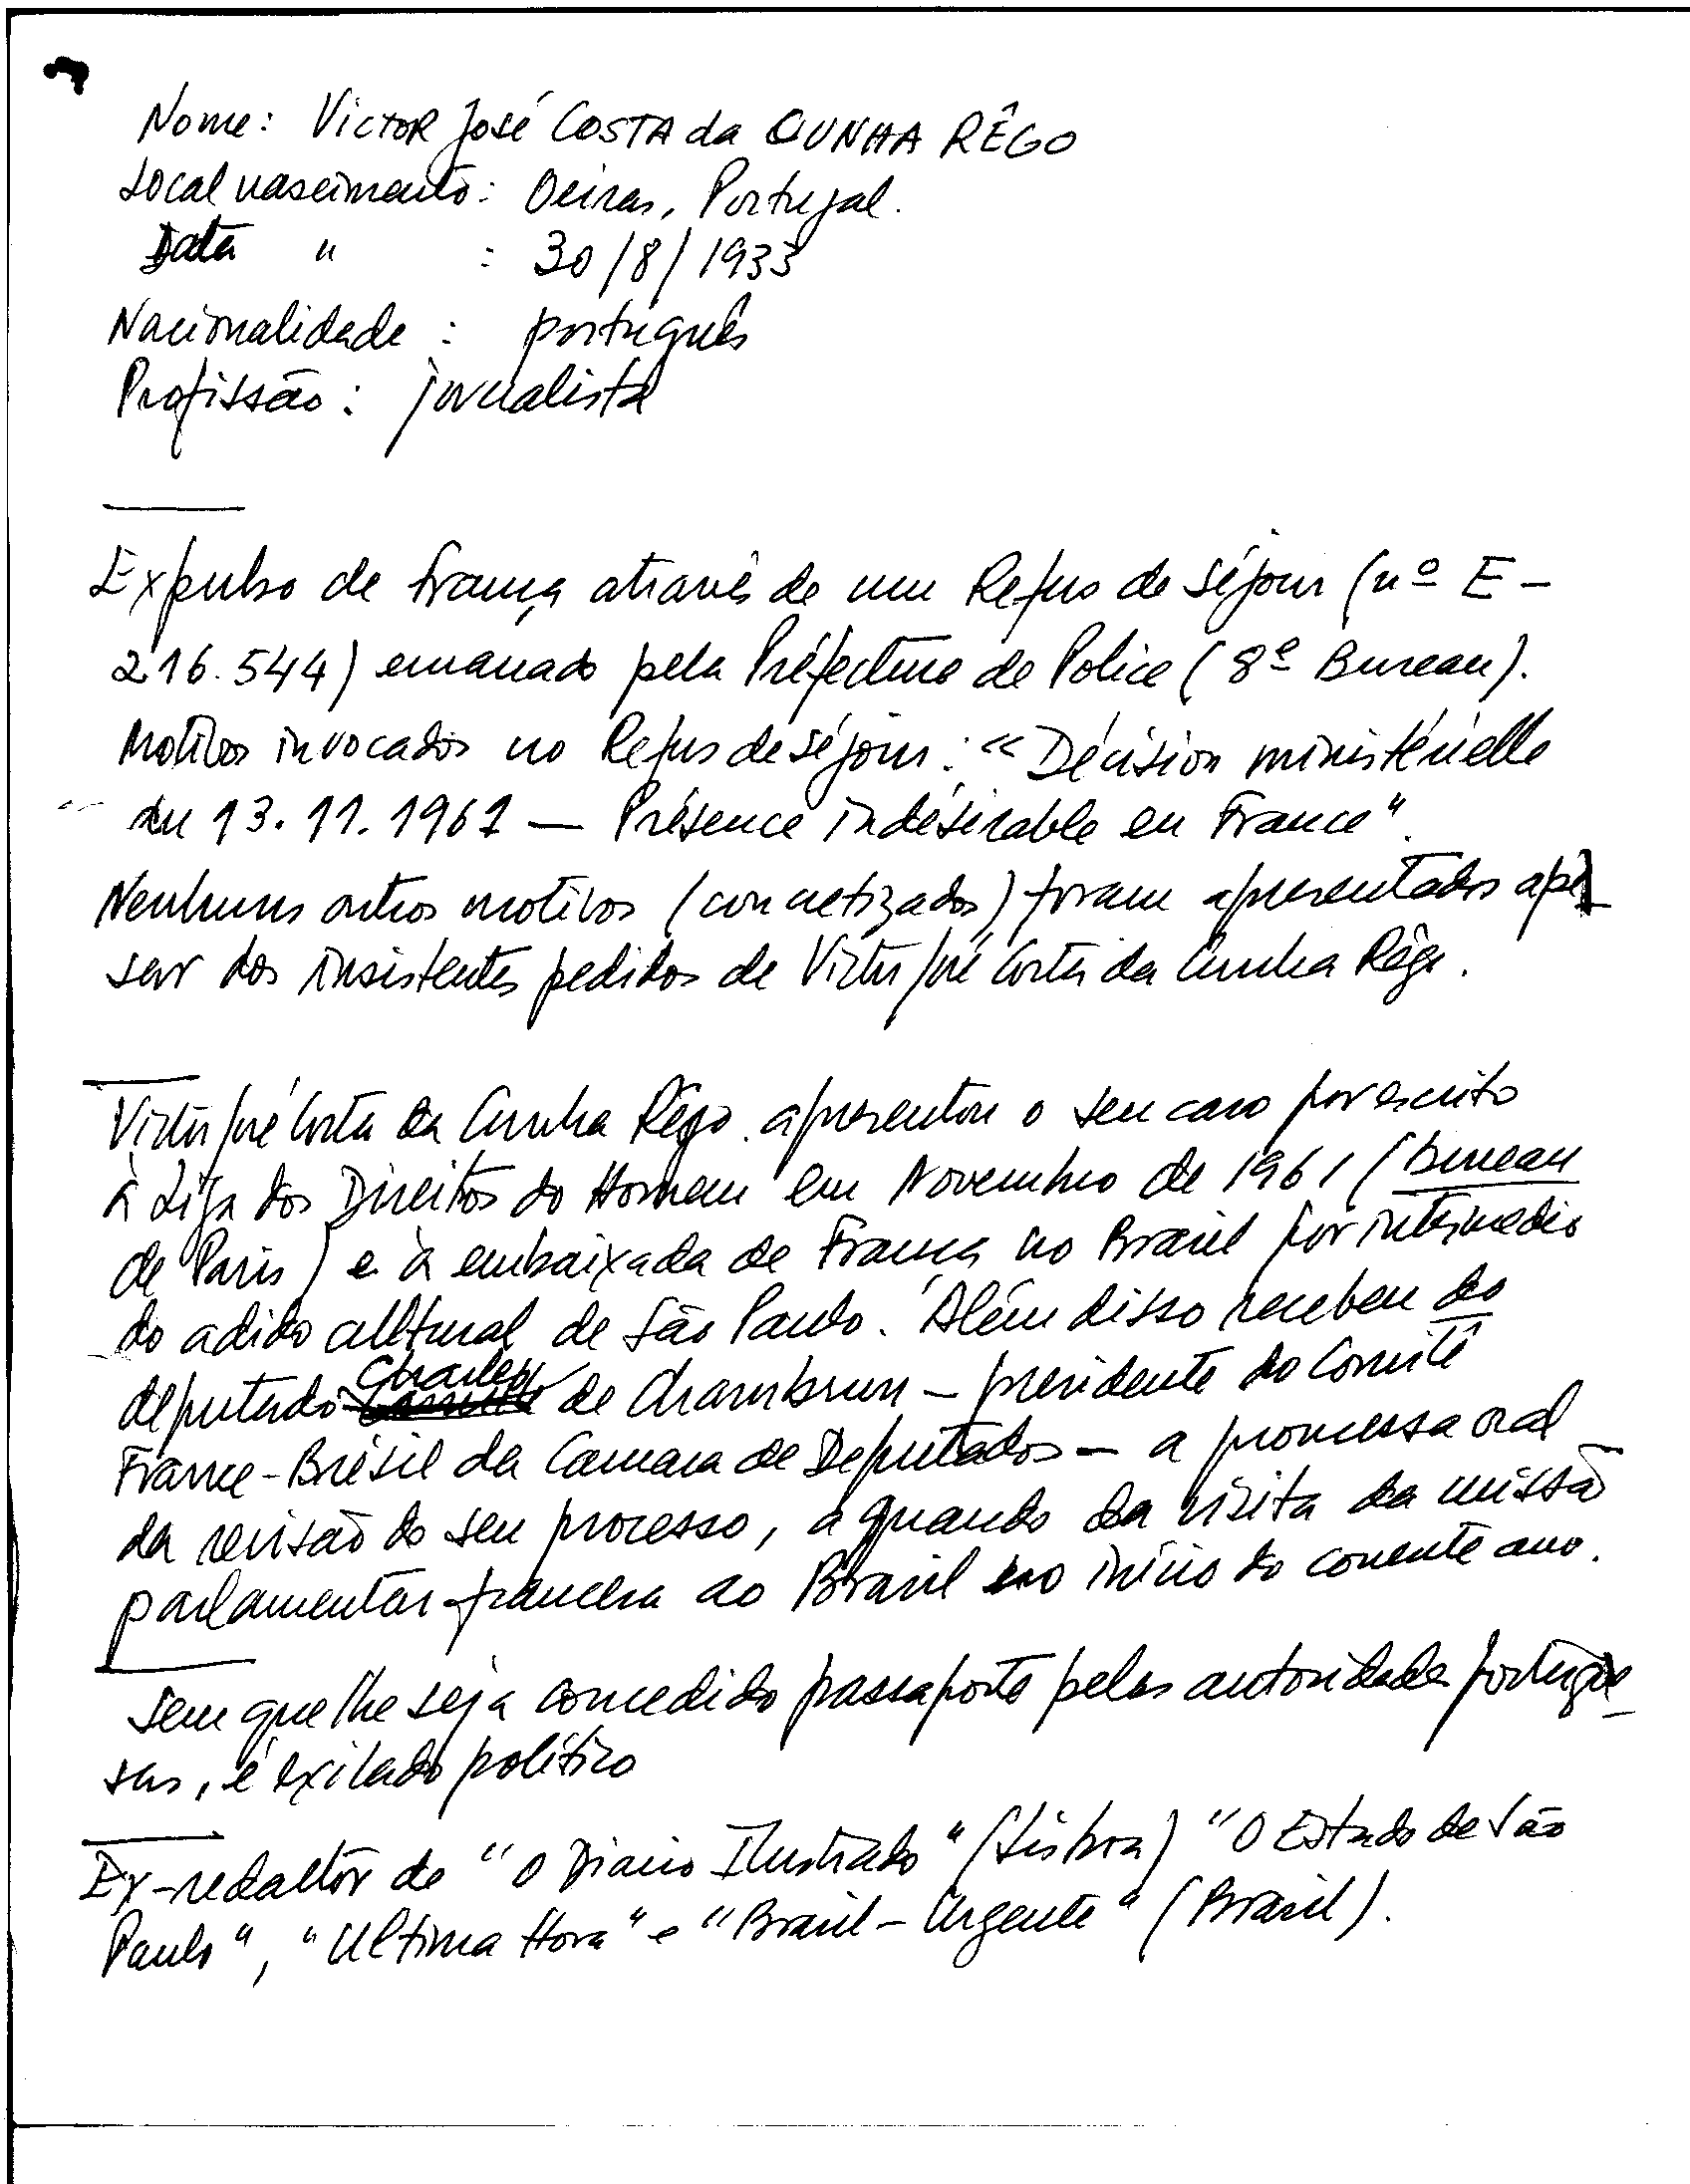 Nome: Victor José COSTA da CUNHA RÊGO
Local nascimento: Oeiras, Portugal.
Data " : 30/8/1933
Nacionalidade: português
Profissão: jornalista
Expulso de França através de um Refus de Séjour (nº E-
216.544) emanado pela Préfecture de Police (8º Bureau).
Motivos invocados no Refus de séjour: "Décision ministérielle
du 13.11.1961 — Présence indésirable en France".
Nenhuns outros motivos (concretizados) foram apresentados ape
sar dos insistentes pedidos de Victor José Costa da Cunha Rêgo.
Victor José Costa da Cunha Rêgo apresentou o seu caso por escrito
à Liga dos Direitos do Homem em Novembro de 1961 (Bureau
de Paris) e à embaixada de França no Brasil por intermédio
do adido cultural de São Paulo. Além disso recebeu do
deputado Charles de Chambrun — presidente do Comité
France-Brésil da Camara de Deputados — a promessa oral
da revisão do seu processo, aquando da visita da missão
parlamentar francesa ao Brasil no início do corrente ano.
Sem que lhe seja concedido passaporte pelas autoridades portugue
sas, é exilado político
Ex-redactor de "O Diário Ilustrado" (Lisboa) "O Estado de São
Paulo", "Ultima Hora" e "Brasil-Urgente" (Brasil).